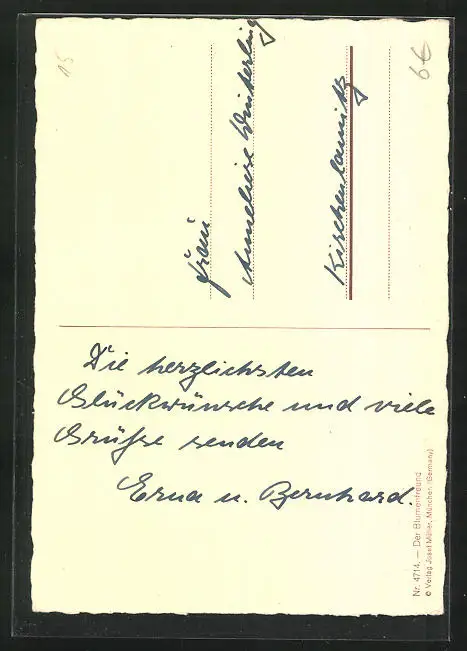 Die herzlichsten
Glückwünsche und viele
Grüße senden
Erna u. Bernhard.
Frau
Anneliese Winterling
Kirchenlamitz
Nr. 4714. — Der Blumenfreund
© Verlag Josef Müller, München (Germany)
15
6€